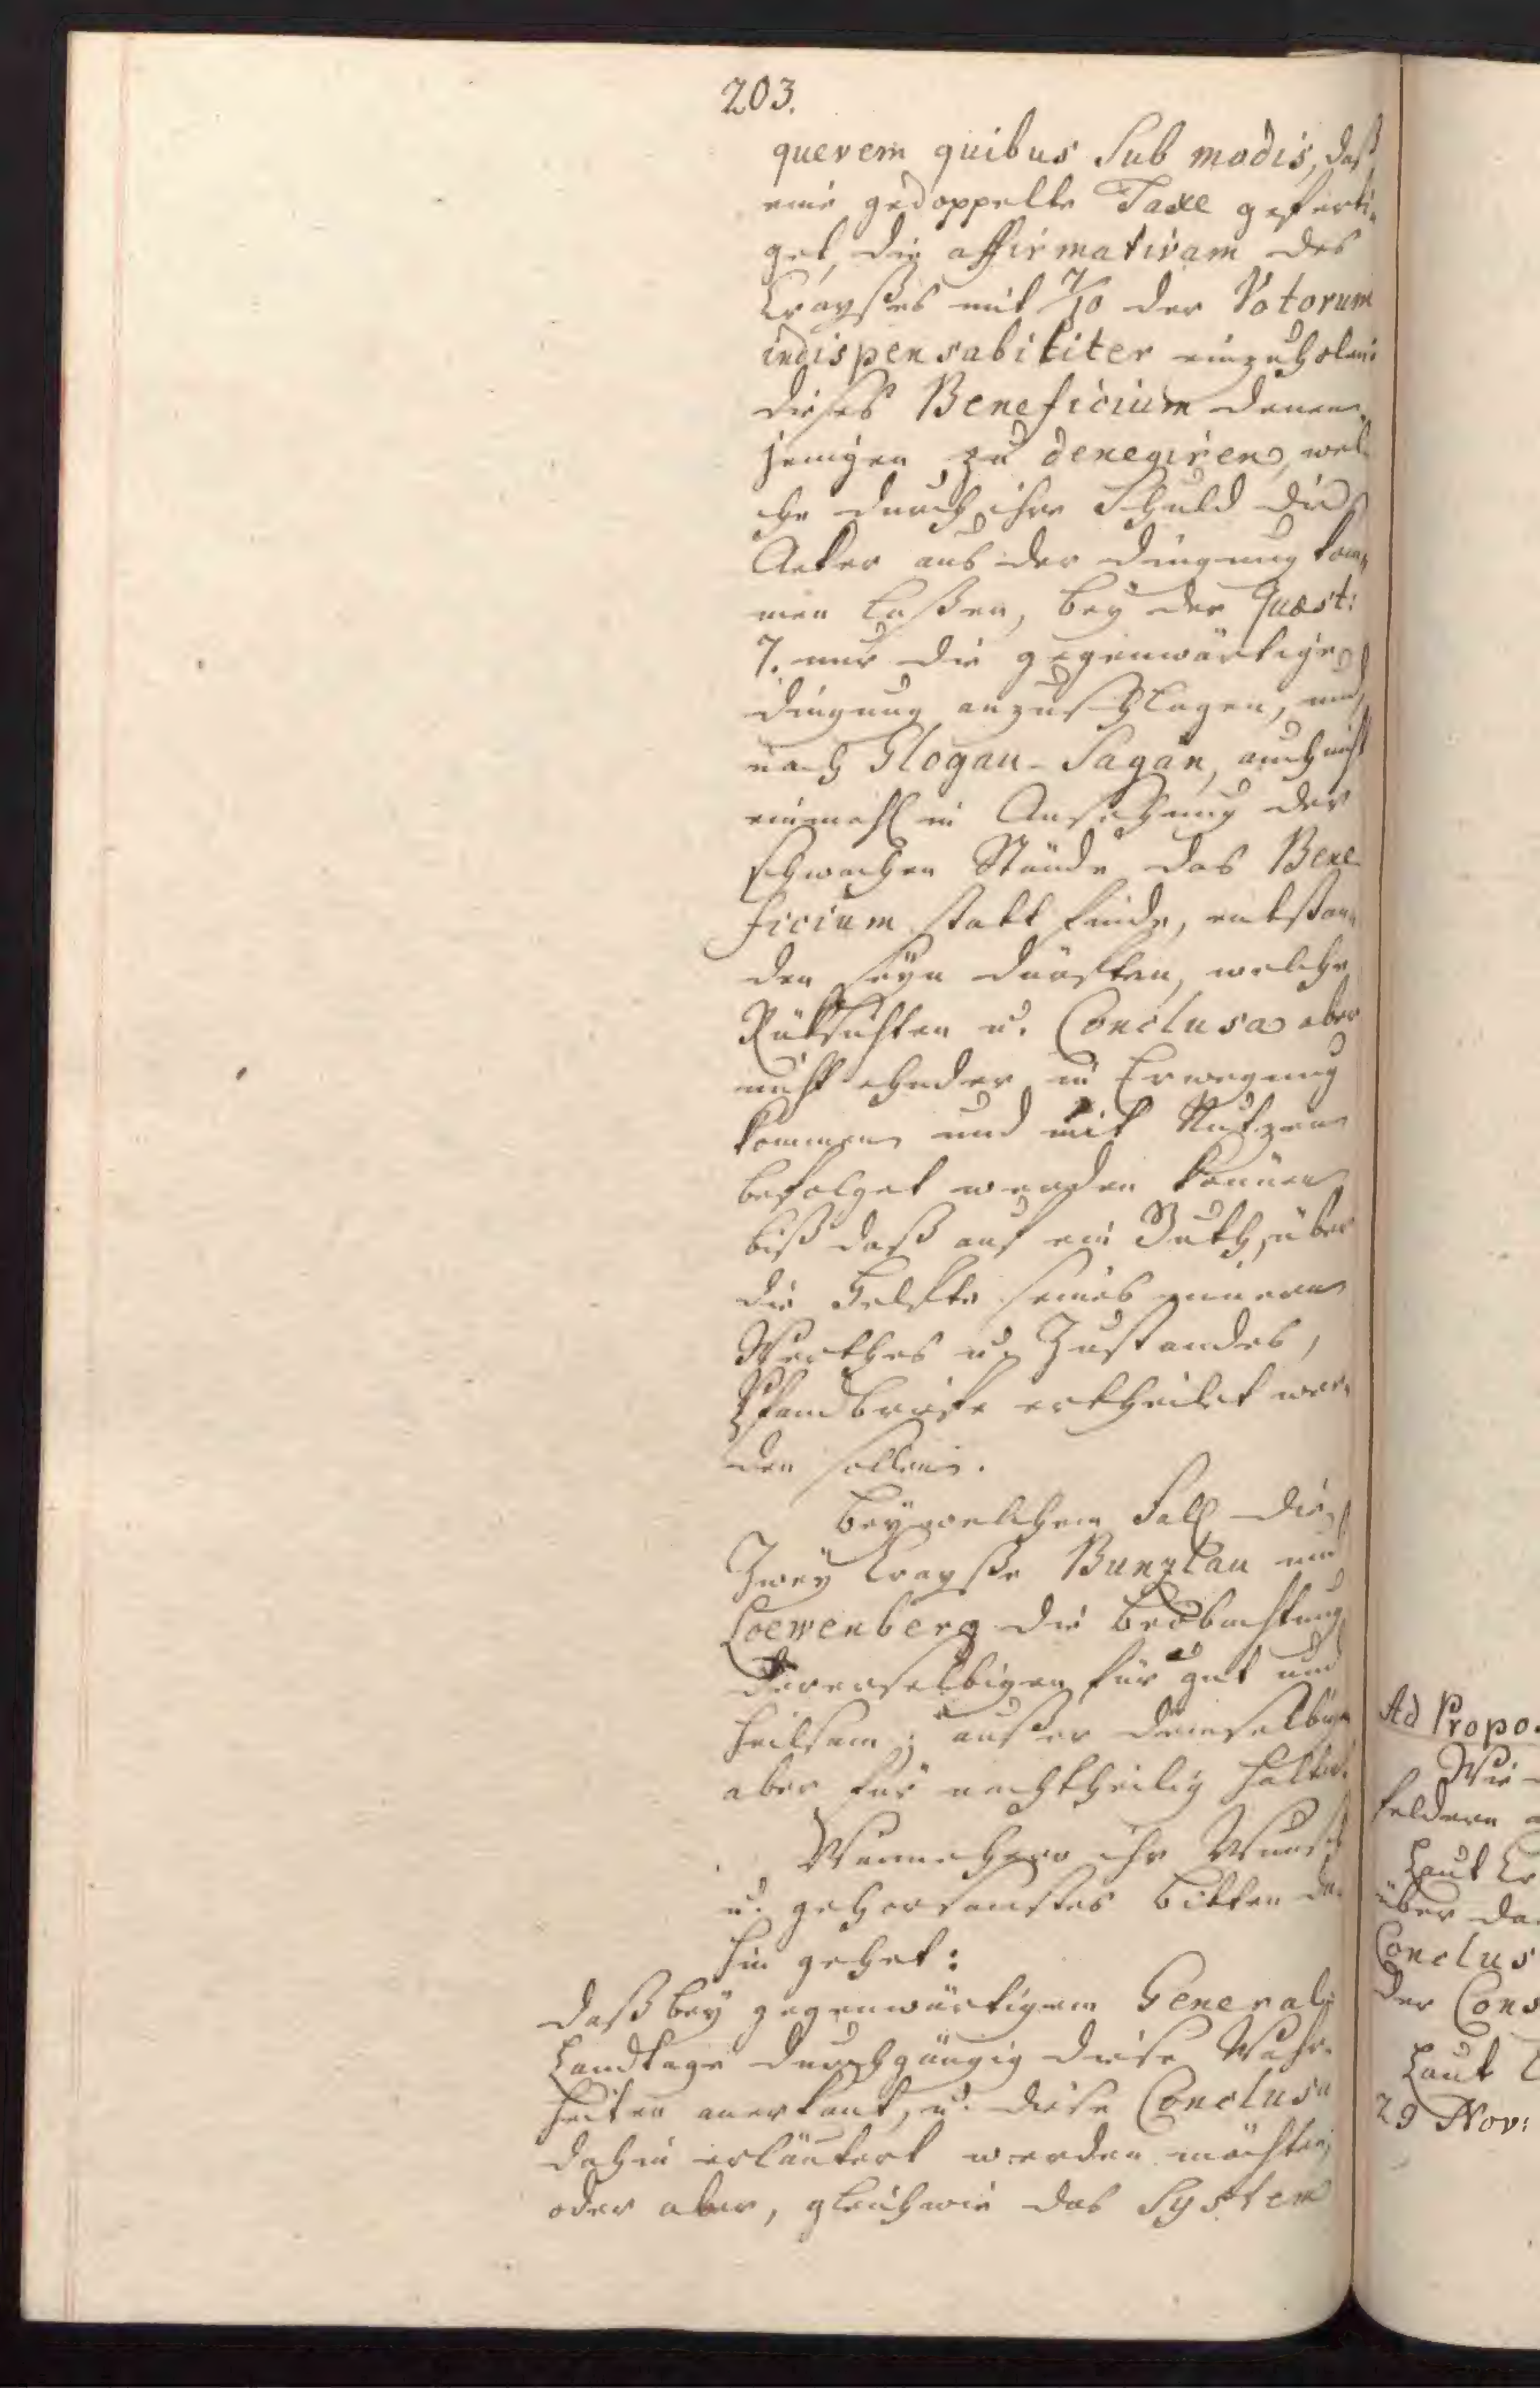 203.
querem quibus Sub modis, daß
eine gedoppelte Taxe geferti-
get, die affirmativam des
Crayßes mit 7/10 der Votorum
indispensabiliter einzuholen
dieses Beneficium denen-
jenigen zu denegiren, wel-
che durch ihre Schuld die
Aeker aus der Düngung kom-
men laßen, bey der Quæst:
7. nur die gegenwärtige
Düngung anzuschlagen, und
nach Glogau-Sagan, auch nicht
einmahl in Ansehung der
schwachen Stände das Bene-
ficium statt finde, entstan-
den seyn dürften, welche
Rüksichten u. Conclusa aber
nicht ehnder in Erwegung
kommen und mit Nutzen
befolget werden können
biß daß auf ein Guth, über
die Helfte seines innern
Werthes u. Zustandes,
Pfandbriefe ertheilet wer-
den sollen.
Bey welchem Fall die
Zwey Crayße Bunzlau und
Loewenberg die Beobachtung
Dererselbigen für gut und
heilsam; außer demselbigen
aber für nachtheilig halten.
Wannenhero ihr Wunsch
u. gehorsamstes Bitten da
hin gehet:
Daß bey gegenwärtigem General-
Landtage durchgängig diese Wahr-
heiten anerkant, u. diese Conclusa
dahin erläutert werden möchten,
oder aber, gleichwie das System
Ad Propo
Wie
feldern
Laut Cr
über da
Conclus
der Cons
Laut
29 Nov: